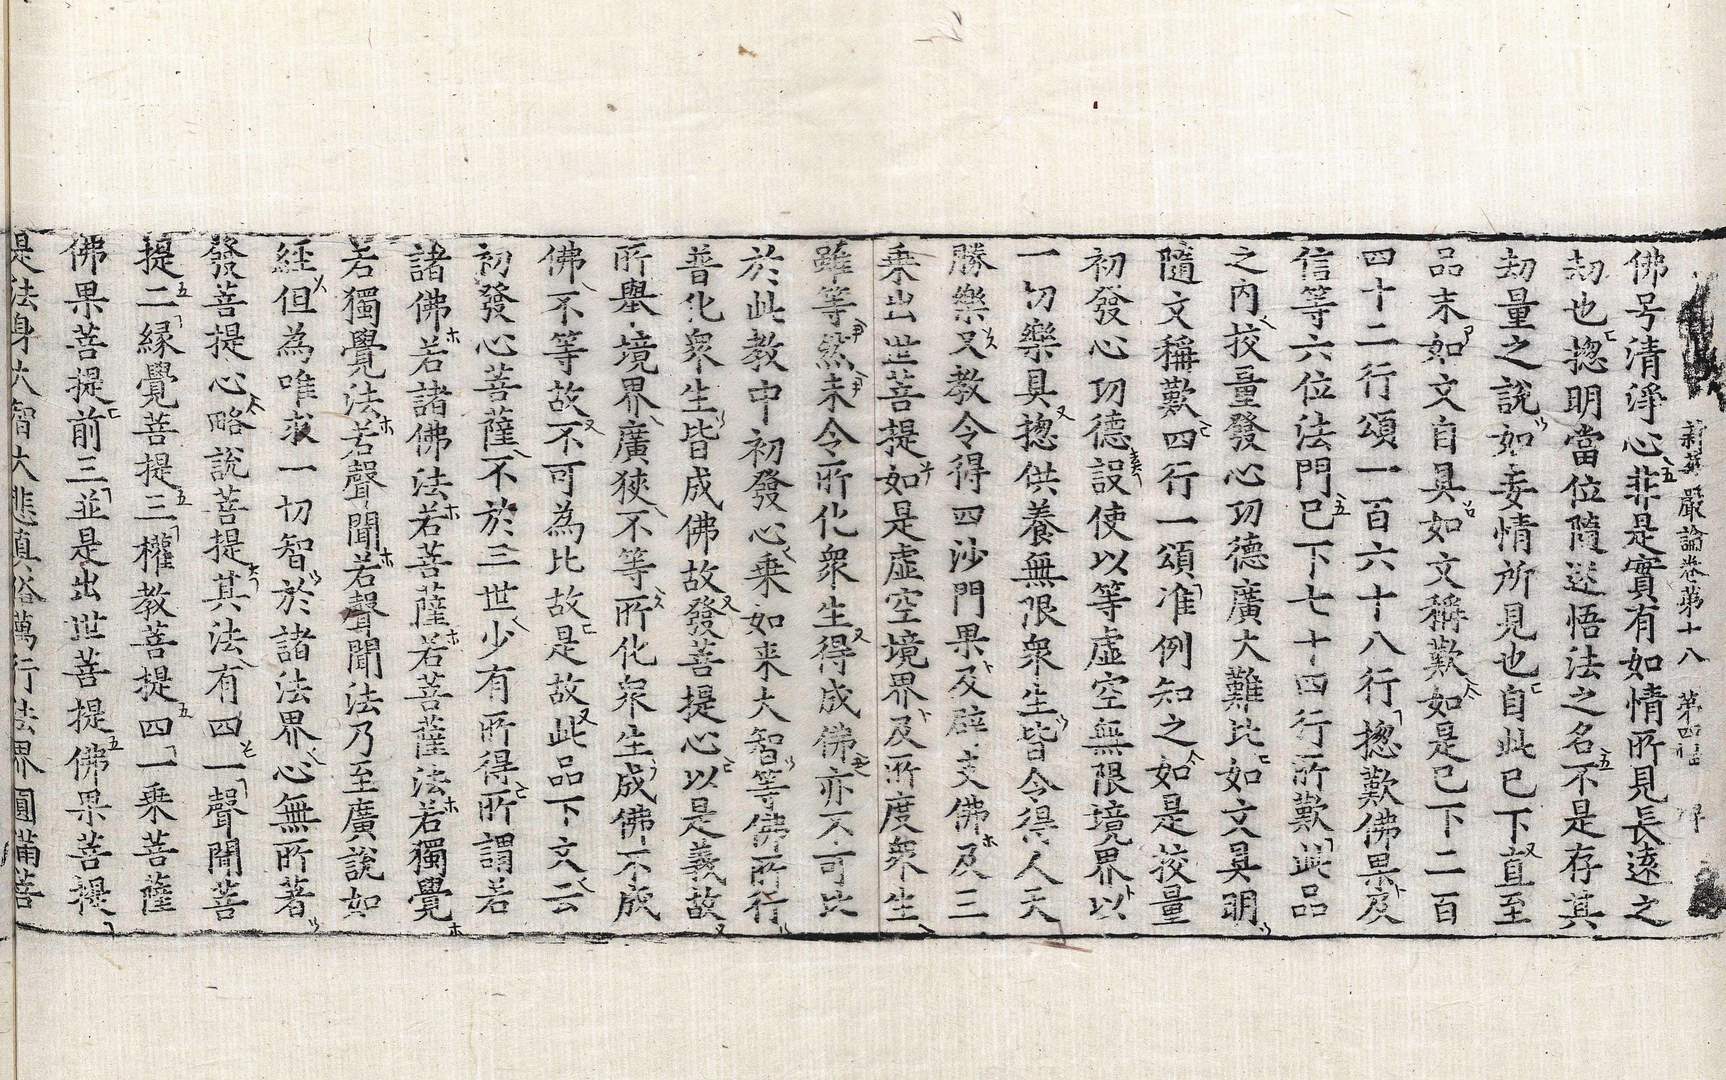 新華嚴論卷第十八 第四
佛号清淨心非是實有如情所見長遠之
劫也揔明當位隨迷悟法之名不是存其
劫量之說如妄情所見也自此已下直至
品末如文自具如文稱歎如是已下二百
四十二行頌一百六十八行揔歎佛果及
信等六位法門已下七十四行所歎此品
之内挍量發心功德廣大難比如文具明
隨文稱歎四行一頌准例知之如是挍量
初發心功德設使以等虛空無限境界以
一切樂具揔供養無限衆生皆令得人天
勝樂又教令得四沙門果及辟支佛及三
乗出世菩提如是虛空境界及所度衆生
雖等然未令所化衆生得成佛亦不可比
於此教中初發心乗如来大智等佛所行
普化衆生皆成佛故發菩提心以是義故
所舉境界廣狹不等所化衆生成佛不成
佛不等故不可為比故是故此品下文云
初發心菩薩不於三世少有所得所謂若
諸佛若諸佛法若菩薩若菩薩法若獨覺
若獨覺法若聲聞若聲聞法乃至廣說如
經但為唯求一切智於諸法界心無所著
發菩提心略說菩提其法有四一聲聞菩
提二縁覺菩提三權教菩提四一乗菩薩
佛果菩提前三並是出世菩提佛果菩提
是法身大智大悲真俗萬行法界圓滿菩